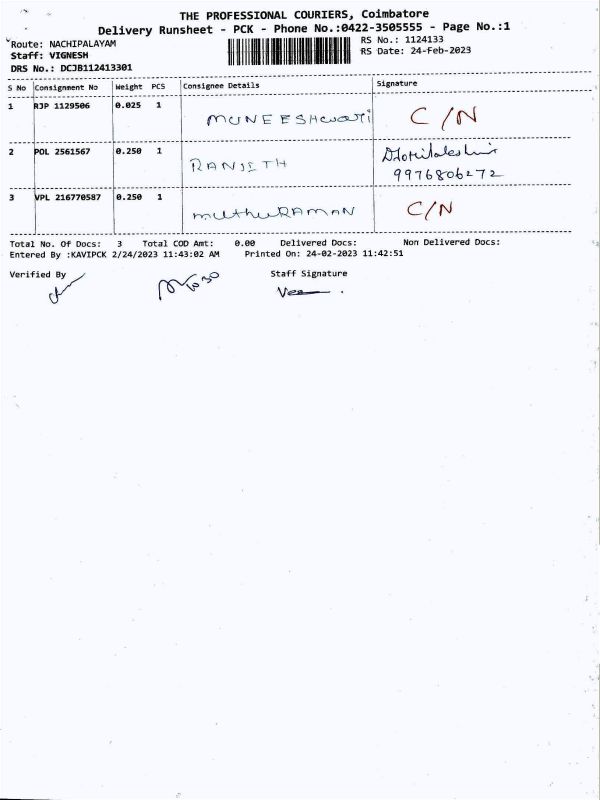 THE PROFESSIONAL COURIERS, Coimbatore
Delivery Runsheet - PCK - Phone No.:0422-3505555 - Page No.:1
Route: NACHIPALAYAM
RS No.: 1124133
Staff: VIGNESH
RS Date: 24-Feb-2023
DRS No.: DCJB112413301
S No Consignment No Weight PCS Consignee Details Signature
1 RJP 1129506 0.025 1 MUNEESHwari C/N
2 POL 2561567 0.250 1 RANJETH
9976806272
3 VPL 216770587 0.250 1 muthuRAMAN C/N
Total No. Of Docs: 3 Total COD Amt: 0.00 Delivered Docs: Non Delivered Docs:
Entered By :KAVIPCK 2/24/2023 11:43:02 AM Printed On: 24-02-2023 11:42:51
Verified By Staff Signature